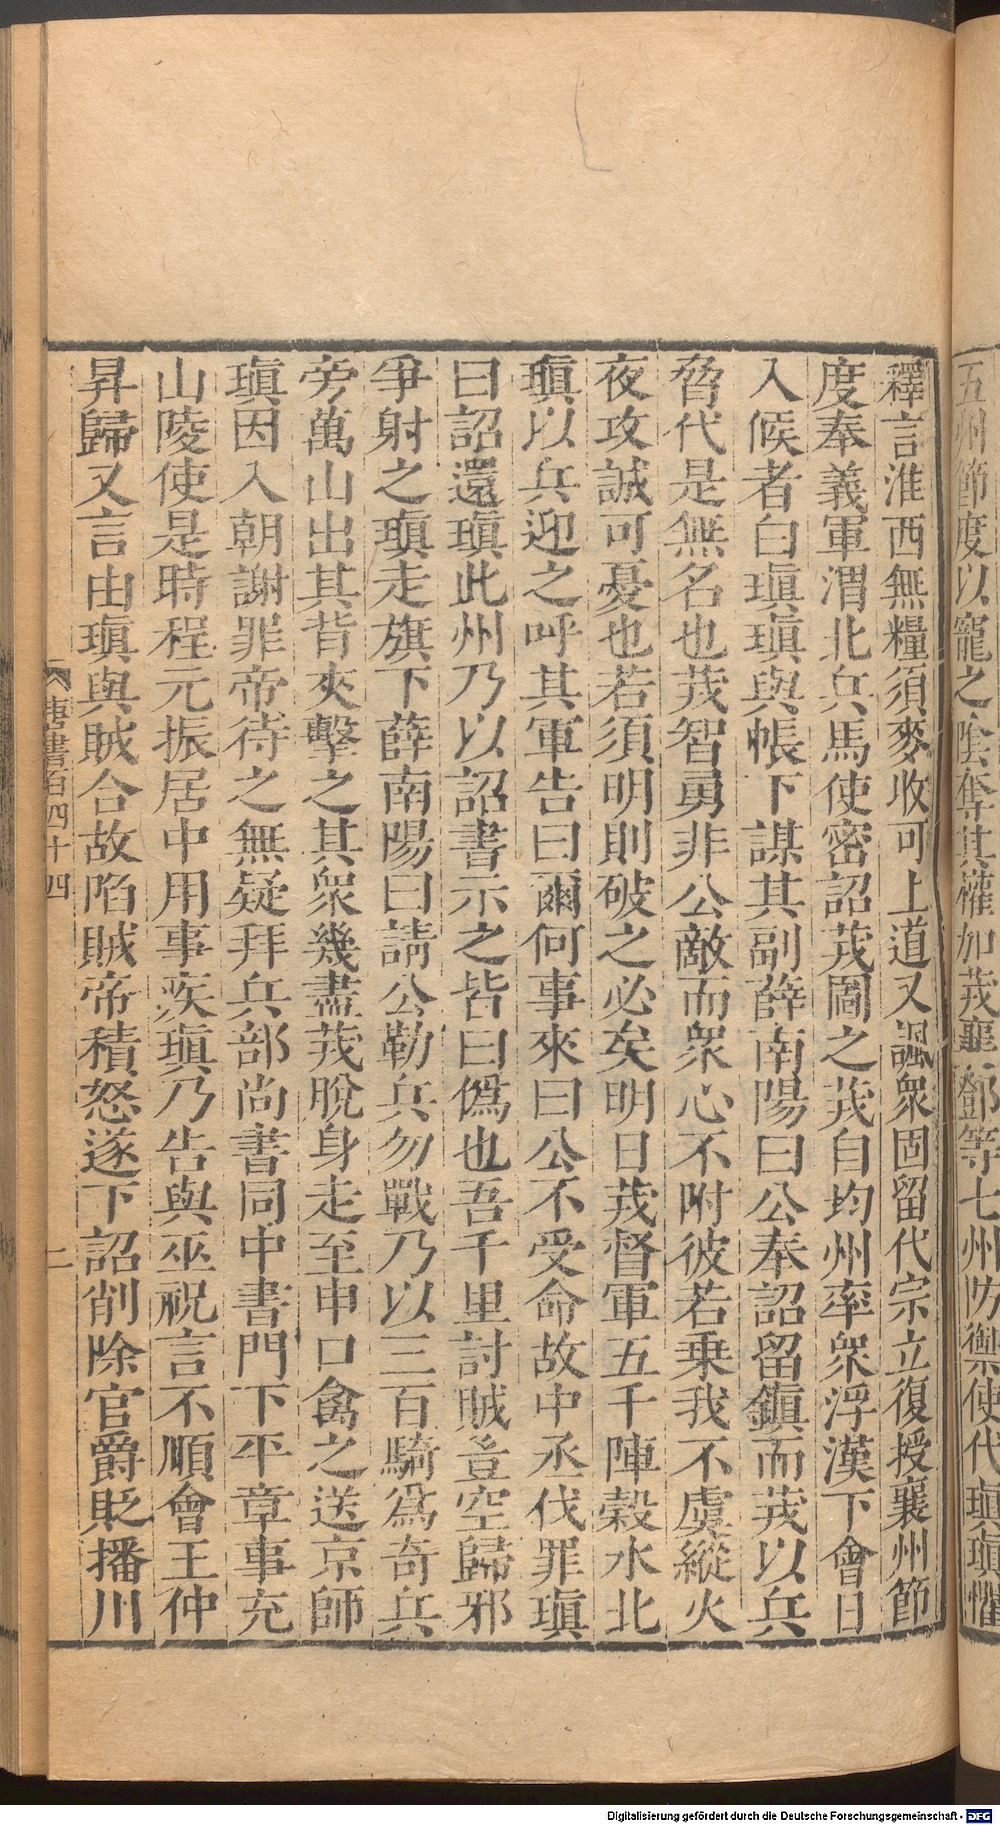 五州節度以寵之陰奪其權加莪襄鄧等七州防禦使代瑱瑱懼
釋言淮西無糧須麥收可上道又諷衆固留代宗立復授襄州節
度奉義軍渭北兵馬使密詔莪圖之莪自均州率衆浮漢下會日
入候者白瑱瑱與帳下謀其副薛南陽曰公奉詔留鎮而莪以兵
脅代是無名也莪智勇非公敵而衆心不附彼若乗我不虞縱火
夜攻誠可憂也若須明則破之必矣明日莪督軍五千陣穀水北
瑱以兵迎之呼其軍告曰爾何事來曰公不受命故中丞伐罪瑱
曰詔還瑱此州乃以詔書示之皆曰僞也吾千里討賊豈空歸邪
爭射之瑱走旗下薛南陽曰請公勒兵勿戰乃以三百騎爲奇兵
旁萬山出其背夾擊之其衆幾盡莪脫身走至申口禽之送京師
瑱因入朝謝罪帝待之無疑拜兵部尚書同中書門下平章事充
山陵使是時程元振居中用事疾瑱乃告與巫祝言不順會王仲
昇歸又言由瑱與賊合故陷賊帝積怒遂下詔削除官爵貶播川
唐書百四十四
二
Digitalisierung gefördert durch die Deutsche Forschungsgemeinschaft - DFG